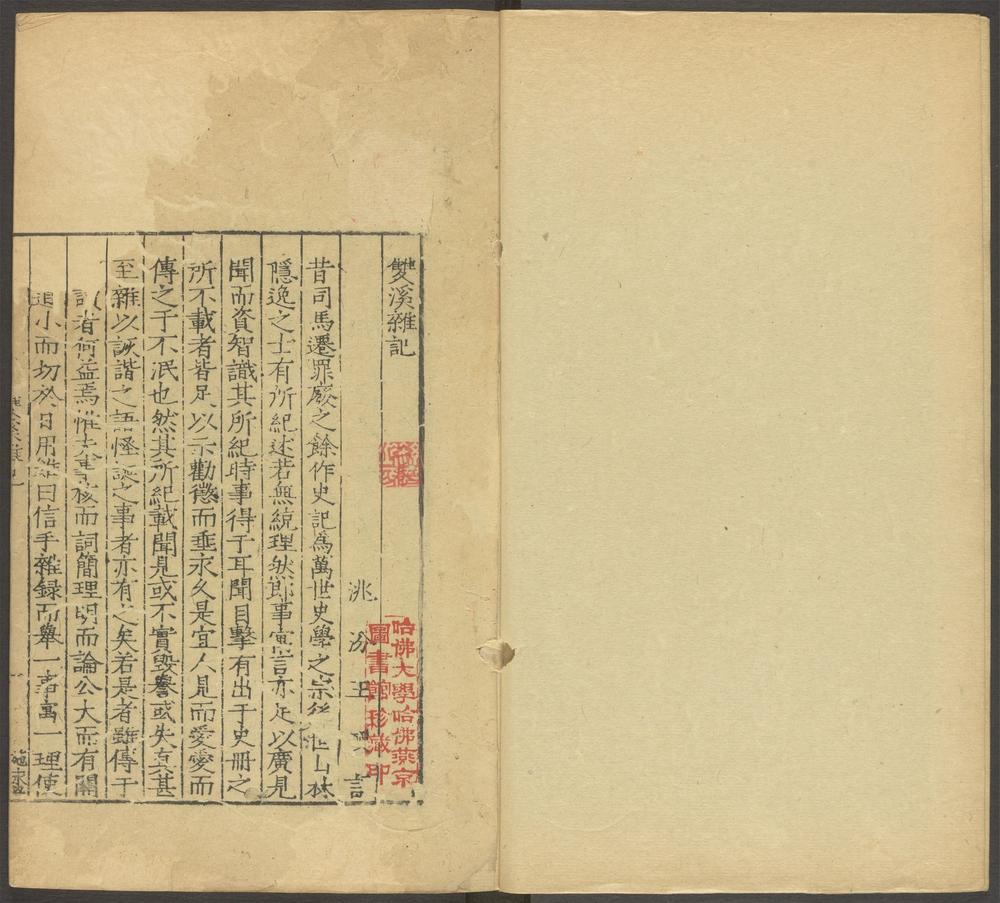 雙溪雜記
洮 汾 王 言
昔司馬遷罪廢之餘作史記為萬世史學之宗 山林
隱逸之士有所紀述若無統理然即事寓言亦足以廣見
聞而資智識其所紀時事得于耳聞目擊有出于史冊之
所不載者皆足以示勸懲而垂永久是宜人見而愛愛而
傳之于不泯也然其所紀載聞見或不實毀譽或失真甚
至雜以詼諧之語怪誕之事者亦有之矣若是者雖傳于
者何益焉惟 核而詞簡理明而論公大而有關
小而切於日用 曰信手雜録而舉一事寓一理使
哈佛大學哈佛燕京
圖書館珍藏印